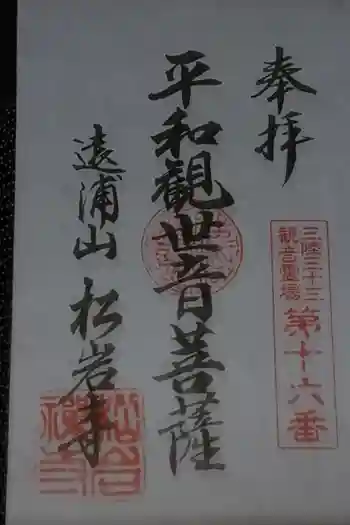 奉拝
三陸三十三
観音霊場
第十六番
平和観世音菩薩
遠浦山 松岩寺
松岩
禅寺